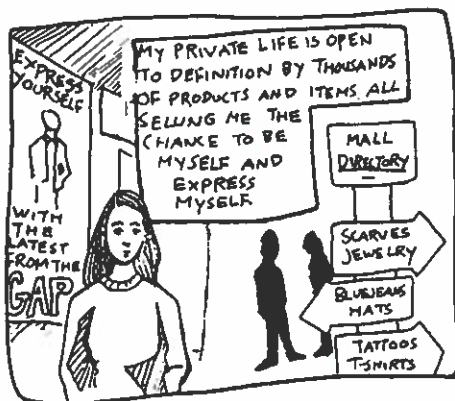 EXPRESS
YOURSELF
WITH
THE
LATEST
FROM THE
GAP
MY PRIVATE LIFE IS OPEN
TO DEFINITION BY THOUSANDS
OF PRODUCTS AND ITEMS ALL
SELLING ME THE
CHANCE TO BE
MYSELF AND
EXPRESS
MYSELF
MALL
DIRECTORY
SCARVES
JEWELRY
BLUEJEANS
HATS
TATTOOS
T-SHIRTS